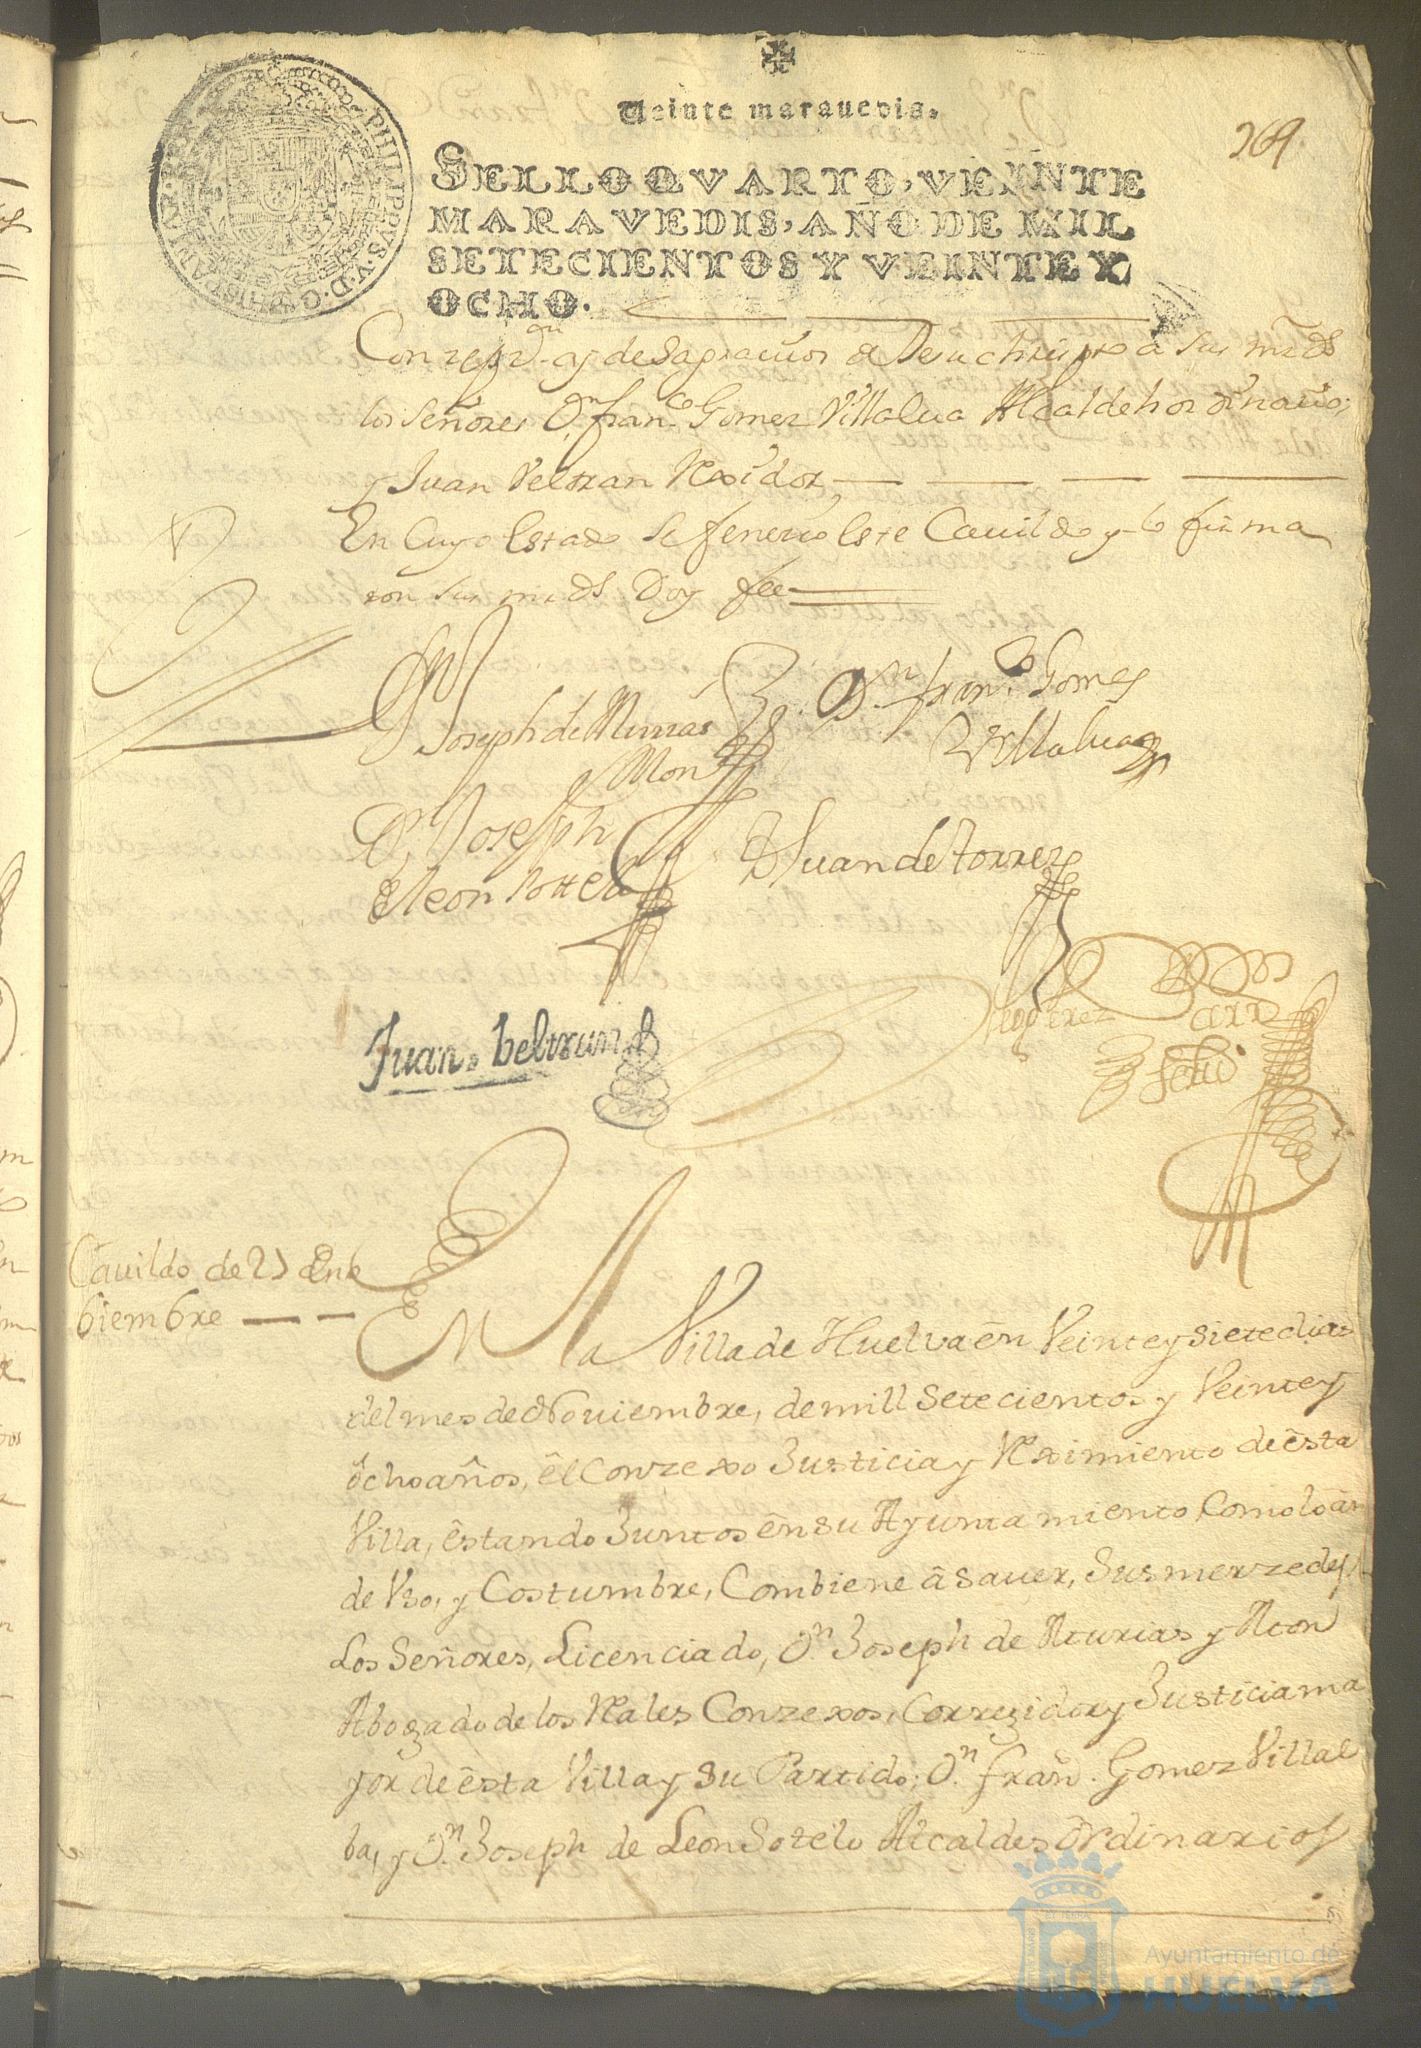 Veinte marauedis.
SELLO QVARTO, VEINTE
MARAVEDIS, AÑO DE MIL
SETECIENTOS Y VEINTE Y
OCHO.
PHILIPPVS. V. D. G. HISPANIAR. REX
269.
Con de Sagrauios a sus mrds
los Señores Dn. Franco. Gomez Villalua Alcalde hordinario;
y Juan Veltran Rexidor,
En Cuyo Estado Se fenecio Este Cauildo y lo firma
ron sus mrds Doy fee
Joseph de
Mon
Dn. Franco. Gomes
Villalua
Dn. Joseph
de leon sottelo
Juan de torres
Juan. beltran
Cauildo de 27 de No
biembre
En la Villa de Huelva ên Veinte y siete dias
del mes de Noviembre, de mill Setecientos y Veinte y
ôcho años, êl Conzexo Justicia y Reximiento de êsta
Villa, êstando Juntos ên su Ayuntamiento Como lo ân
de Vso, y Costumbre, Combiene â Sauer, Sus merzedes
Los Señores, Licenciado, Dn. Joseph de Asturias y Mon
Abogado de los Rales Conzexos, Correxidor y Justicia ma
yor de êsta Villa y Su Partido; Dn. fran. Gomez Villal
ba, y Dn. Joseph de Leon Sotelo Alcaldes Ôrdinarios
Ayuntamiento de
HUELVA